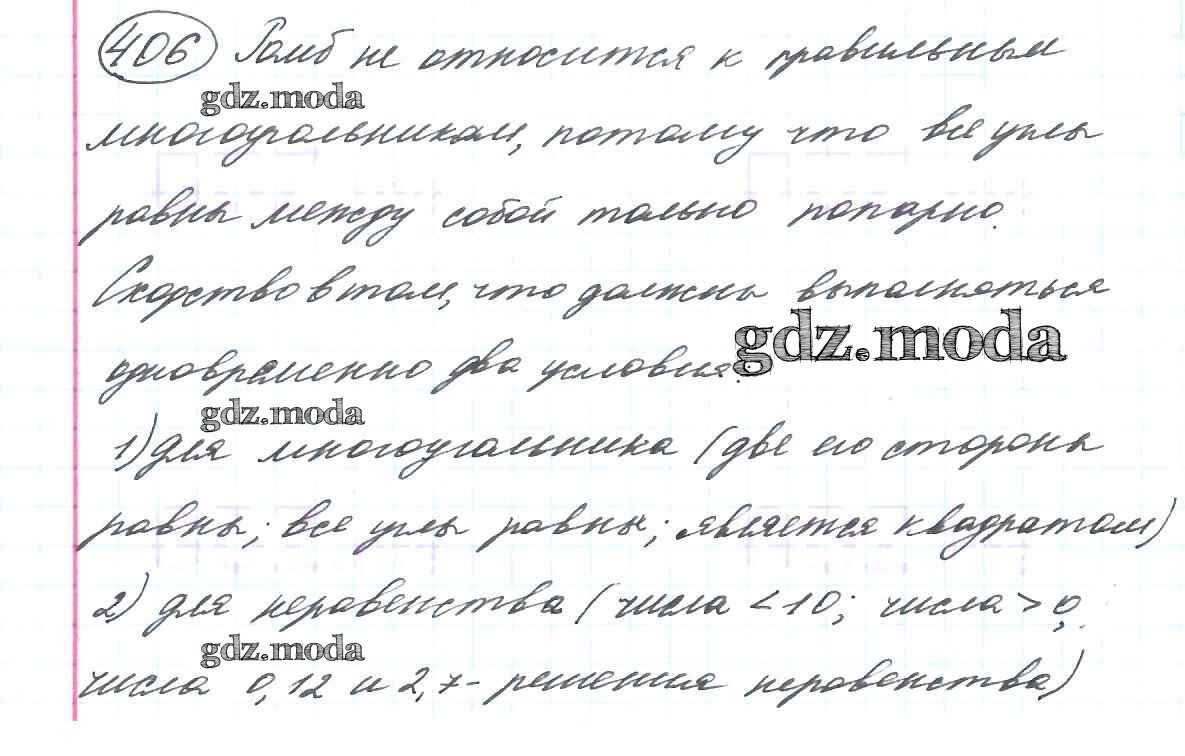 406 Ромб не относится к правильным
gdz.moda
многоугольникам, потому что все углы
равны между собой только попарно.
Сходство в том, что должны выполняться
gdz.moda
одновременно два условия:
gdz.moda
1) для многоугольника (две его стороны
равны; все углы равны; является квадратом)
2) для неравенства (числа < 10; числа > 0,
gdz.moda
числа 0,12 и 2,7 - решения неравенства)